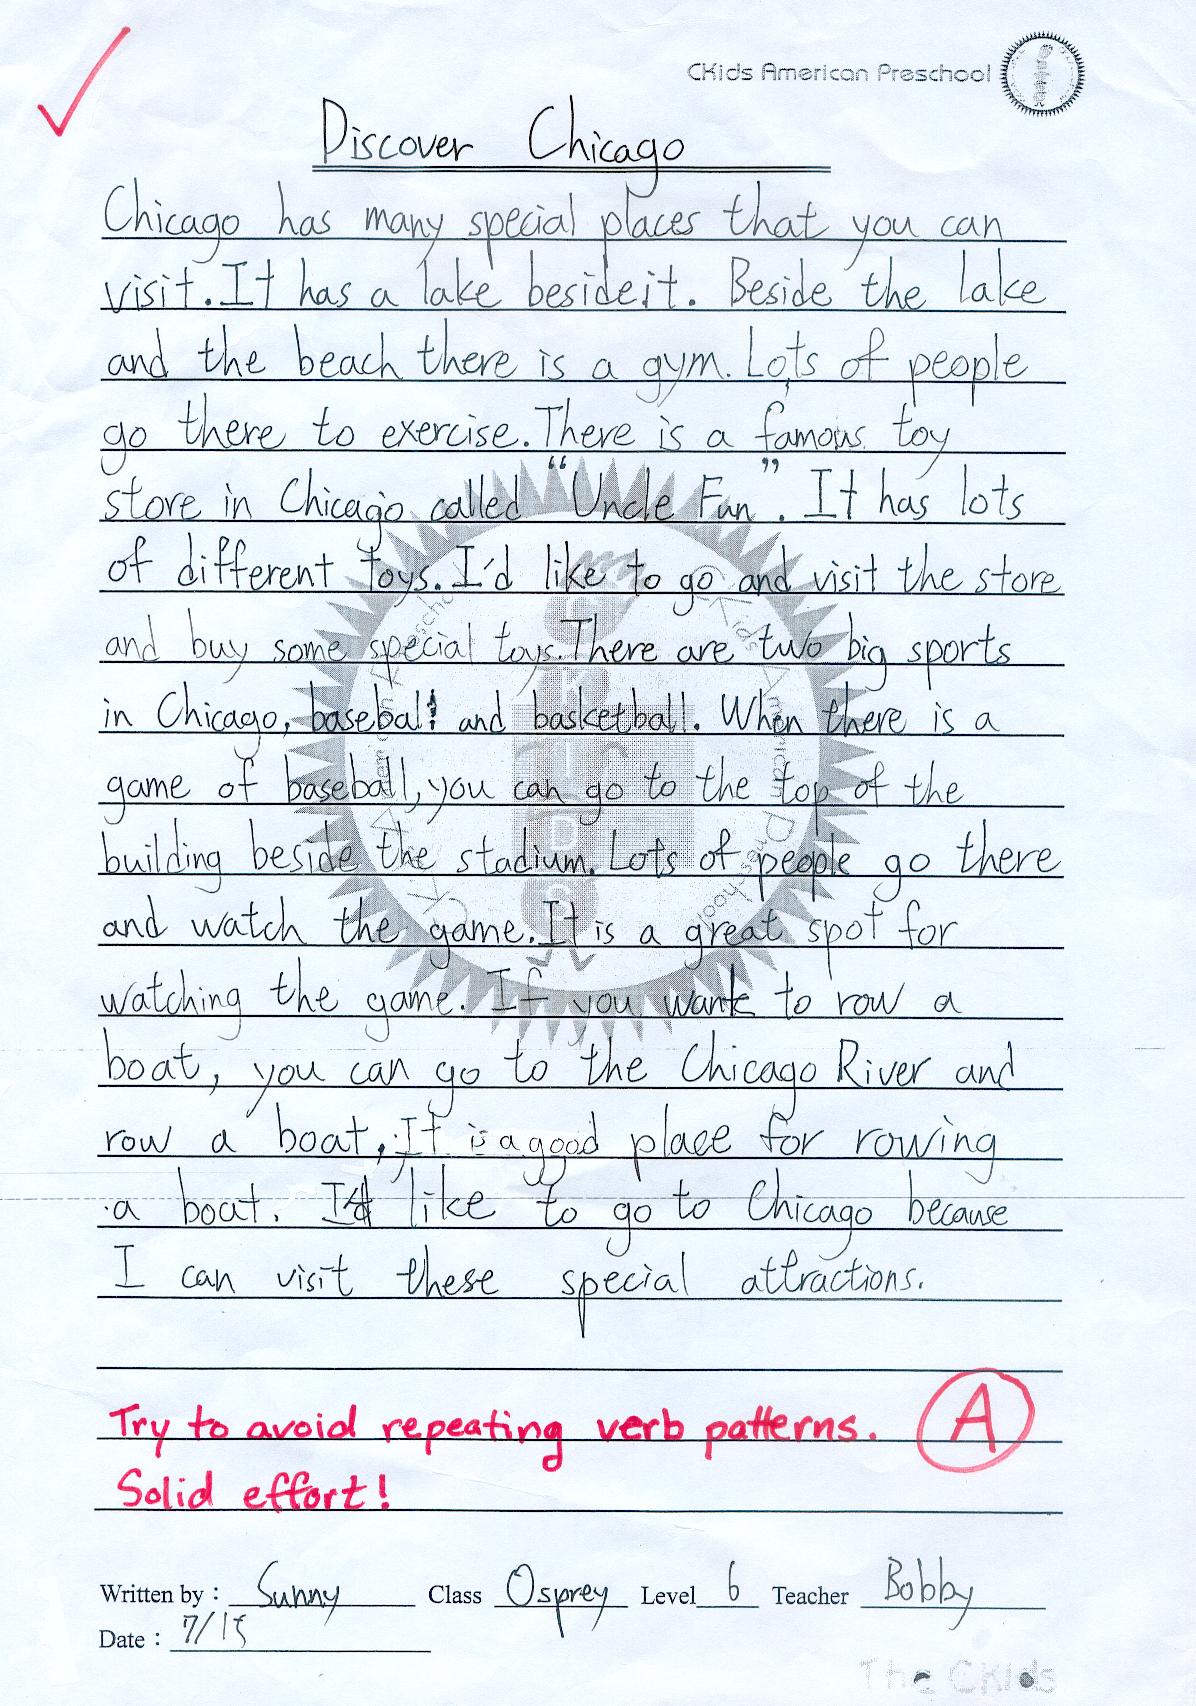 CKids American Preschool
Discover Chicago
Chicago has many special places that you can
visit. It has a lake beside it. Beside the lake
and the beach there is a gym. Lots of people
go there to exercise. There is a famous toy
store in Chicago called "Uncle Fun". It has lots
of different toys. I'd like to go and visit the store
and buy some special toys. There are two big sports
in Chicago, baseball and basketball. When there is a
game of baseball, you can go to the top of the
building beside the stadium. Lots of people go there
and watch the game. It is a great spot for
watching the game. If you want to row a
boat, you can go to the Chicago River and
row a boat. It is a good place for rowing
a boat. I'd like to go to Chicago because
I can visit these special attractions.
Try to avoid repeating verb patterns. A
Solid effort!
Written by : Sunny Class Osprey Level 6 Teacher Bobby
Date : 7/15
The CKids